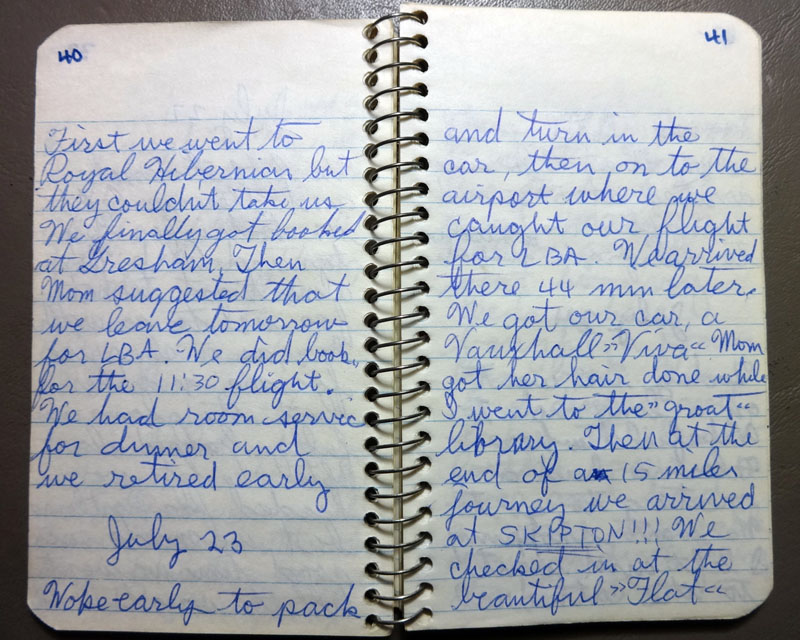 40
First we went to
Royal Hibernian but
they couldn't take us
We finally got booked
at Gresham. Then
Mom suggested that
we leave tomorrow
for LBA. We did book
for the 11:30 flight.
We had room servic
for dinner and
we retired early
July 23
Woke early to pack
41
and turn in the
car, then on to the
airport where we
caught our flight
for LBA. We arrived
there 44 min later.
We got our car, a
Vauxhall »Viva« Mom
got her hair done while
I went to the »groat«
library. Then at the
end of a 15 miles
journey we arrived
at SKIPTON!!! We
checked in at the
beautiful »Flat«